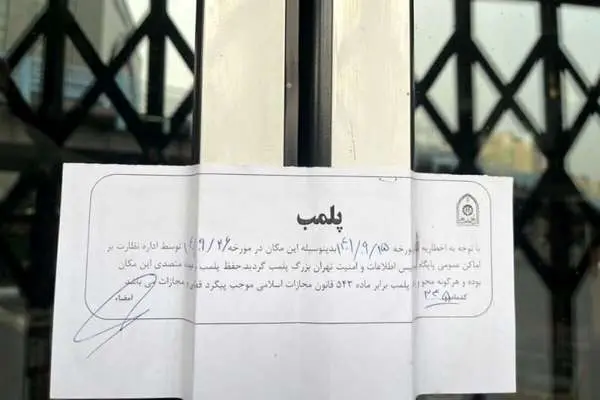 پلمب
با توجه به اخطاریه مورخه ۱۴۰۱/۹/۱۵ بدینوسیله این مکان در مورخه ۱۴۰۱/۹/۲۶ توسط اداره نظارت بر
اماکن عمومی پایگاه پلیس اطلاعات و امنیت تهران بزرگ پلمب گردید. حفظ پلمب متصدی این مکان
بوده و هرگونه محو پلمب برابر ماده ۵۴۳ قانون مجازات اسلامی موجب پیگرد و مجازات می باشد
کدملی امضاء